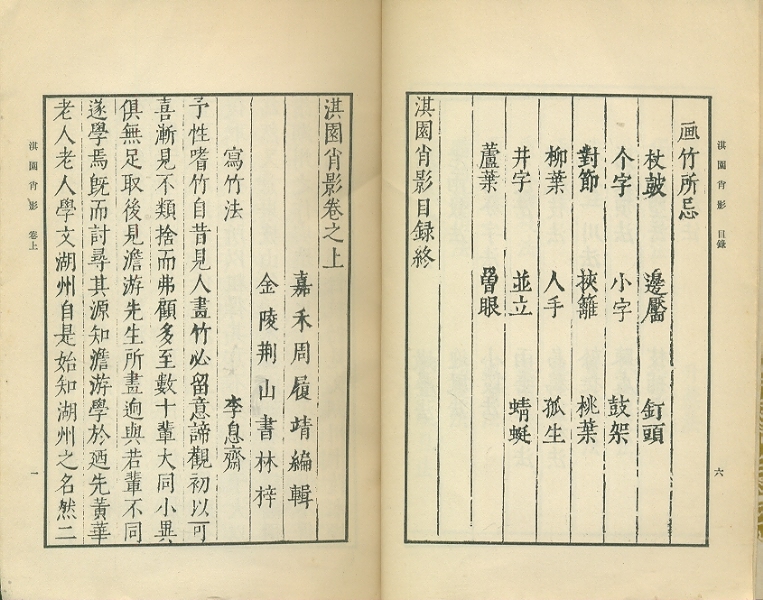 淇園肖影 目錄
画竹所忌
杖鼓 邊壓 釘頭
个字 小字 鼓架
對節 挾籬 桃葉
柳葉 人手 孤生
井字 並立 蜻蜓
蘆葉 罾眼
淇園肖影目録終
六
淇園肖影卷之上
嘉禾周履靖編輯
金陵荆山書林梓
寫竹法 李息齋
予性嗜竹自昔見人畫竹必留意諦觀初以可
喜漸見不類捨而弗顧多至數十輩大同小異
俱無足取後見澹游先生所畫迥與若輩不同
遂學焉既而討尋其源知澹游學於廼先黃華
老人老人學文湖州自是始知湖州之名然二
淇園肖影 卷上
一